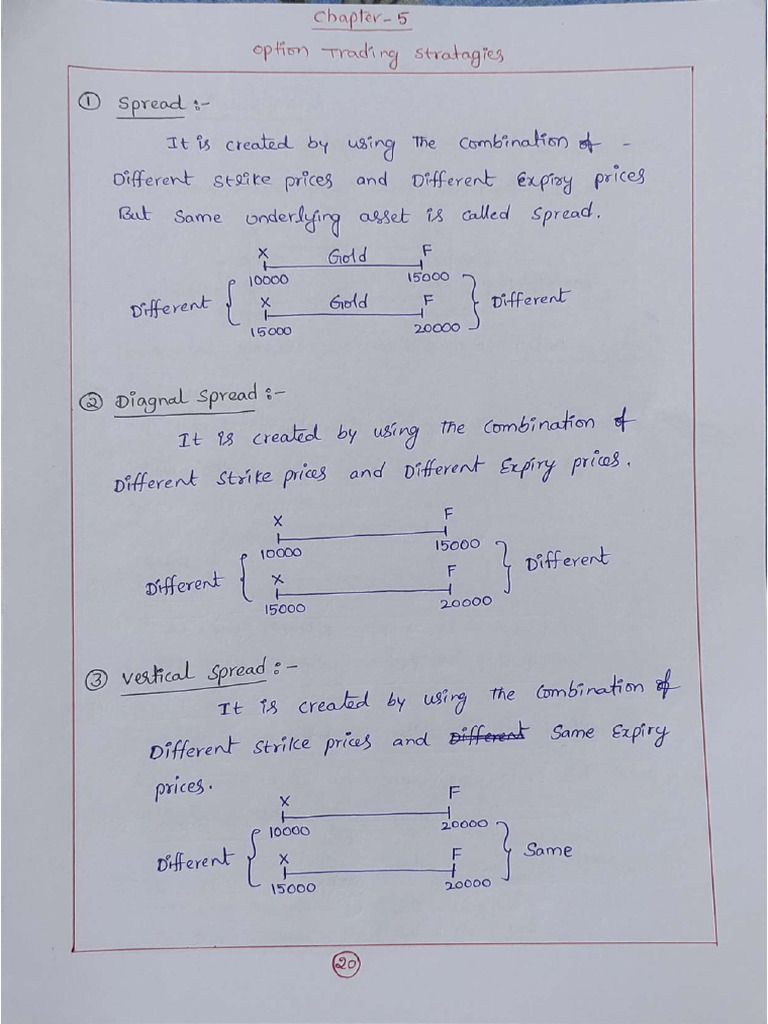 Chapter-5
Option Trading Stratagies
① Spread :-
It is created by using The Combination of -
Different Strike prices and Different Expiry prices
But Same underlying asset is called Spread.
X Gold F
10000 15000
Different X Gold F Different
15000 20000
② Diagnal Spread :-
It is created by using the Combination of
Different Strike prices and Different Expiry prices.
X F
10000 15000
Different X F Different
15000 20000
③ Vertical Spread :-
It is created by using the Combination of
Different Strike prices and Different Same Expiry
prices.
X F
10000 20000
Different X F Same
15000 20000
20